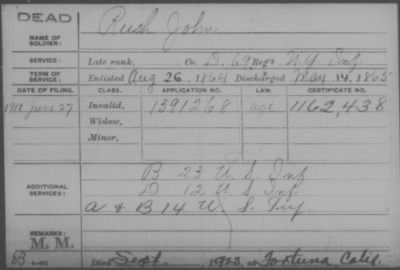 DEAD
NAME OF SOLDIER: Rush John
SERVICE: Late rank, Co. D. 69 Reg't N.Y. Inf.
TERM OF SERVICE: Enlisted Aug 26, 1864 Discharged May. 14, 1865
DATE OF FILING. CLASS. APPLICATION NO. LAW. CERTIFICATE NO.
June 27 Invalid, 1391268 1162,438
Widow,
Minor,
B 23 U.S. Inf
ADDITIONAL SERVICES: D 12 U.S. Inf.
A & B 14 U.S. Inf.
REMARKS:
M. M.
Died Sept. , 1923, at Fortuna, Calif.